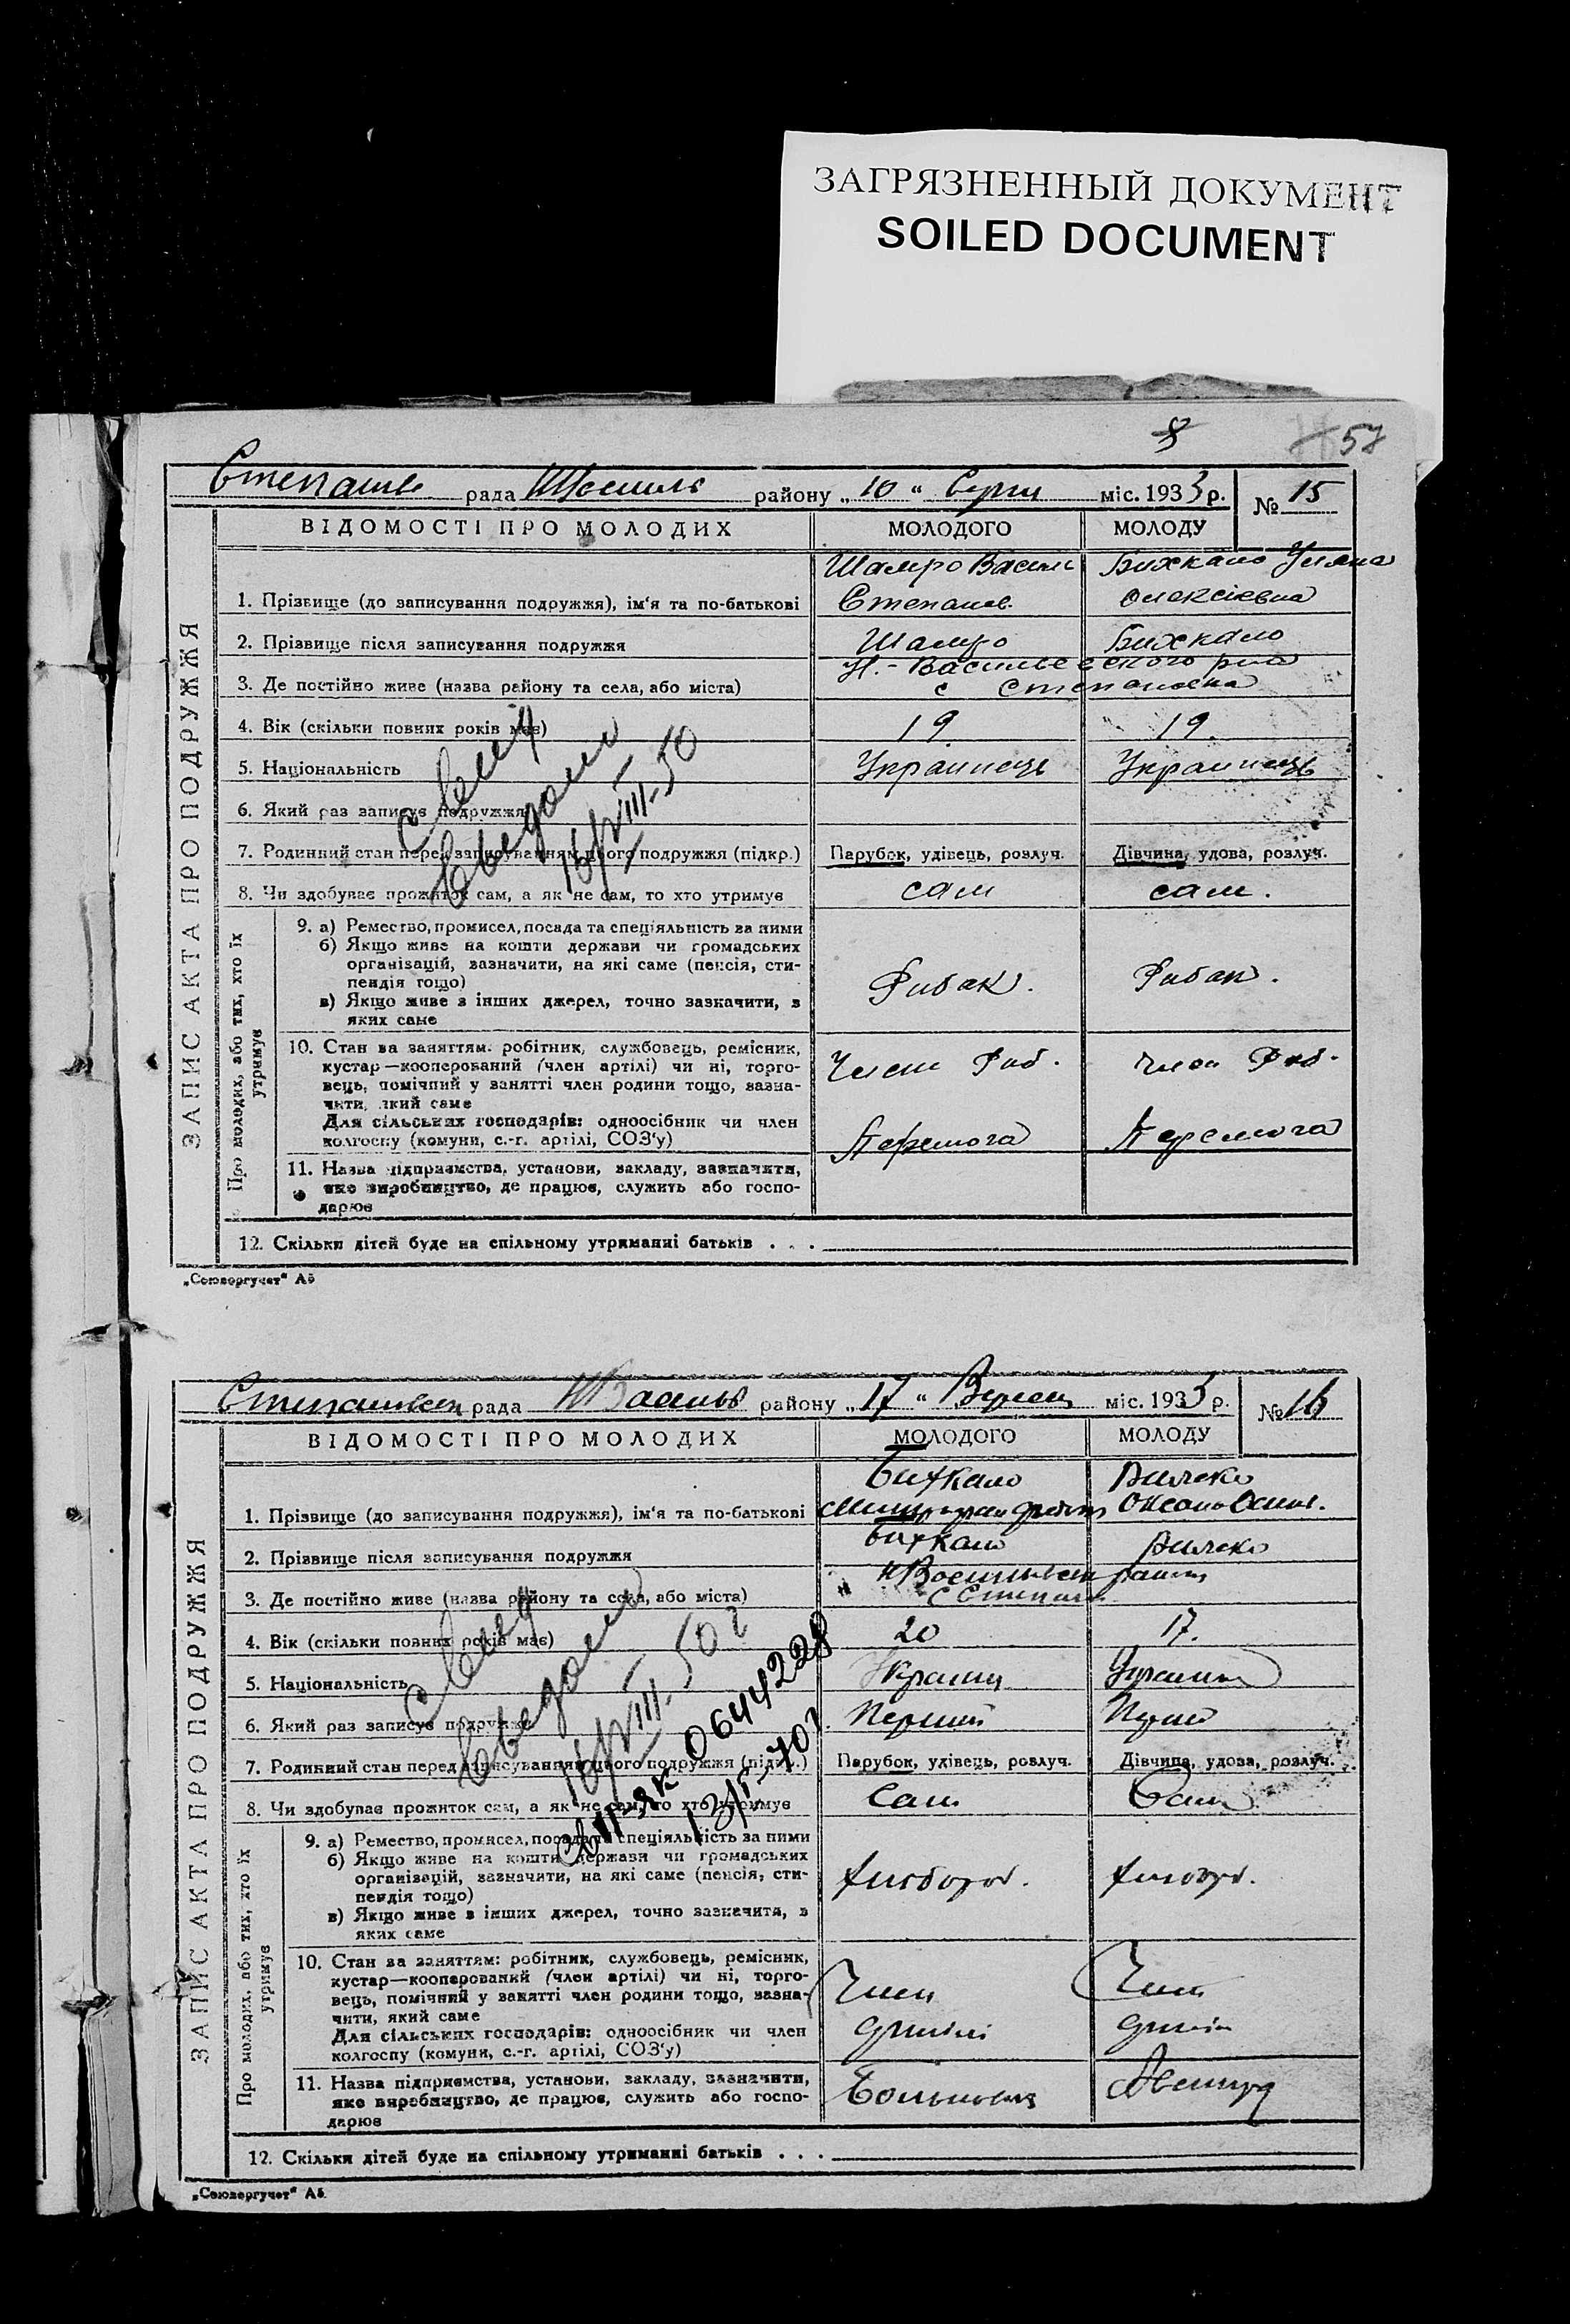 ЗАГРЯЗНЕННЫЙ ДОКУМЕНТ
SOILED DOCUMENT
57
рада району „10“ міс. 1933 р. № 15
ЗАПИС АКТА ПРО ПОДРУЖЖЯ
ВІДОМОСТІ ПРО МОЛОДИХ МОЛОДОГО МОЛОДУ
Шамро Василь Бихкало Уляна
1. Прізвище (до записування подружжя), ім‘я та по-батькові Степанов. Олексіевна
2. Прізвище після записування подружжя Шамро Бихкало
Н.-Васильевского рна
3. Де постійно живе (назва району та села, або міста) с Степановка
4. Вік (скільки повних років має) 19 19.
5. Національність Украинець Украинець
6. Який раз записує подружжя
7. Родинний стан перед записуванням цього подружжя (підкр.) Парубок, удівець, розлуч. Дівчина, удова, розлуч.
8. Чи здобуває прожиток сам, а як не сам, то хто утримує сам сам.
16/VIII-50
Про молодих, або тих, хто їх утримує
9. а) Ремество, промисел, посада та спеціяльність за ними
б) Якщо живе на кошти держави чи громадських
організацій, зазначити, на які саме (пенсія, сти-
пендія тощо)
в) Якщо живе з інших джерел, точно зазначити, з
яких саме
Рибак. Рибак.
10. Стан за заняттям: робітник, службовець, ремісник,
кустар—кооперований (член артілі) чи ні, торго-
вець, помічний у занятті член родини тощо, зазна-
чити, який саме
Для сільських господарів: одноосібник чи член
колгоспу (комуни, с.-г. артілі, СОЗ‘у)
Член Риб. Член Риб.
Перемога Перемога
11. Назва підприємства, установи, закладу, зазначити,
яке виробництво, де працює, служить або госпо-
дарює
12. Скільки дітей буде на спільному утриманні батьків . . .
„Союзоргучет“ А5
рада району „17“ міс. 1933 р. № 16
ЗАПИС АКТА ПРО ПОДРУЖЖЯ
ВІДОМОСТІ ПРО МОЛОДИХ МОЛОДОГО МОЛОДУ
Бихкало
1. Прізвище (до записування подружжя), ім‘я та по-батькові
2. Прізвище після записування подружжя Бихкало
3. Де постійно живе (назва району та села, або міста)
4. Вік (скільки повних років має) 20 17.
5. Національність
6. Який раз записує подружжя Перший
7. Родинний стан перед записуванням цього подружжя (підкр.) Парубок, удівець, розлуч. Дівчина, удова, розлуч.
8. Чи здобуває прожиток сам, а як не сам, то хто утримує Сам Сам
16/VIII-50 г
0644228
Про молодих, або тих, хто їх утримує
9. а) Ремество, промисел, посада та спеціяльність за ними
б) Якщо живе на кошти держави чи громадських
організацій, зазначити, на які саме (пенсія, сти-
пендія тощо)
в) Якщо живе з інших джерел, точно зазначити, з
яких саме
10. Стан за заняттям: робітник, службовець, ремісник,
кустар—кооперований (член артілі) чи ні, торго-
вець, помічний у занятті член родини тощо, зазна-
чити, який саме
Для сільських господарів: одноосібник чи член
колгоспу (комуни, с.-г. артілі, СОЗ‘у)
Член Член
артілі артіли
11. Назва підприємства, установи, закладу, зазначити,
яке виробництво, де працює, служить або госпо-
дарює
12. Скільки дітей буде на спільному утриманні батьків . . .
„Союзоргучет“ А5